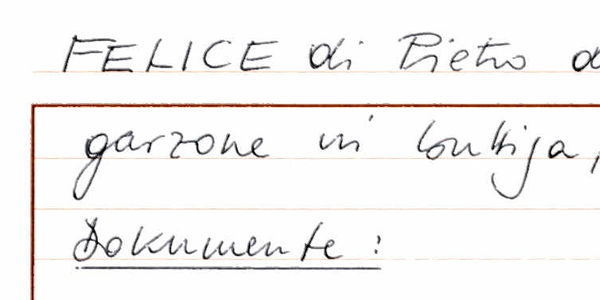 FELICE di Pietro
garzone in
Dokumente: